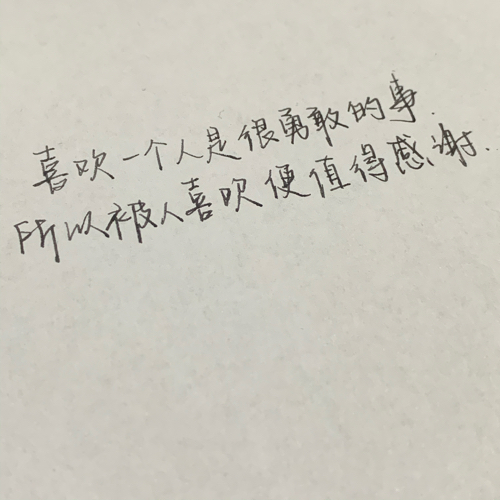 喜欢一个人是很勇敢的事.
所以被人喜欢便值得感谢.